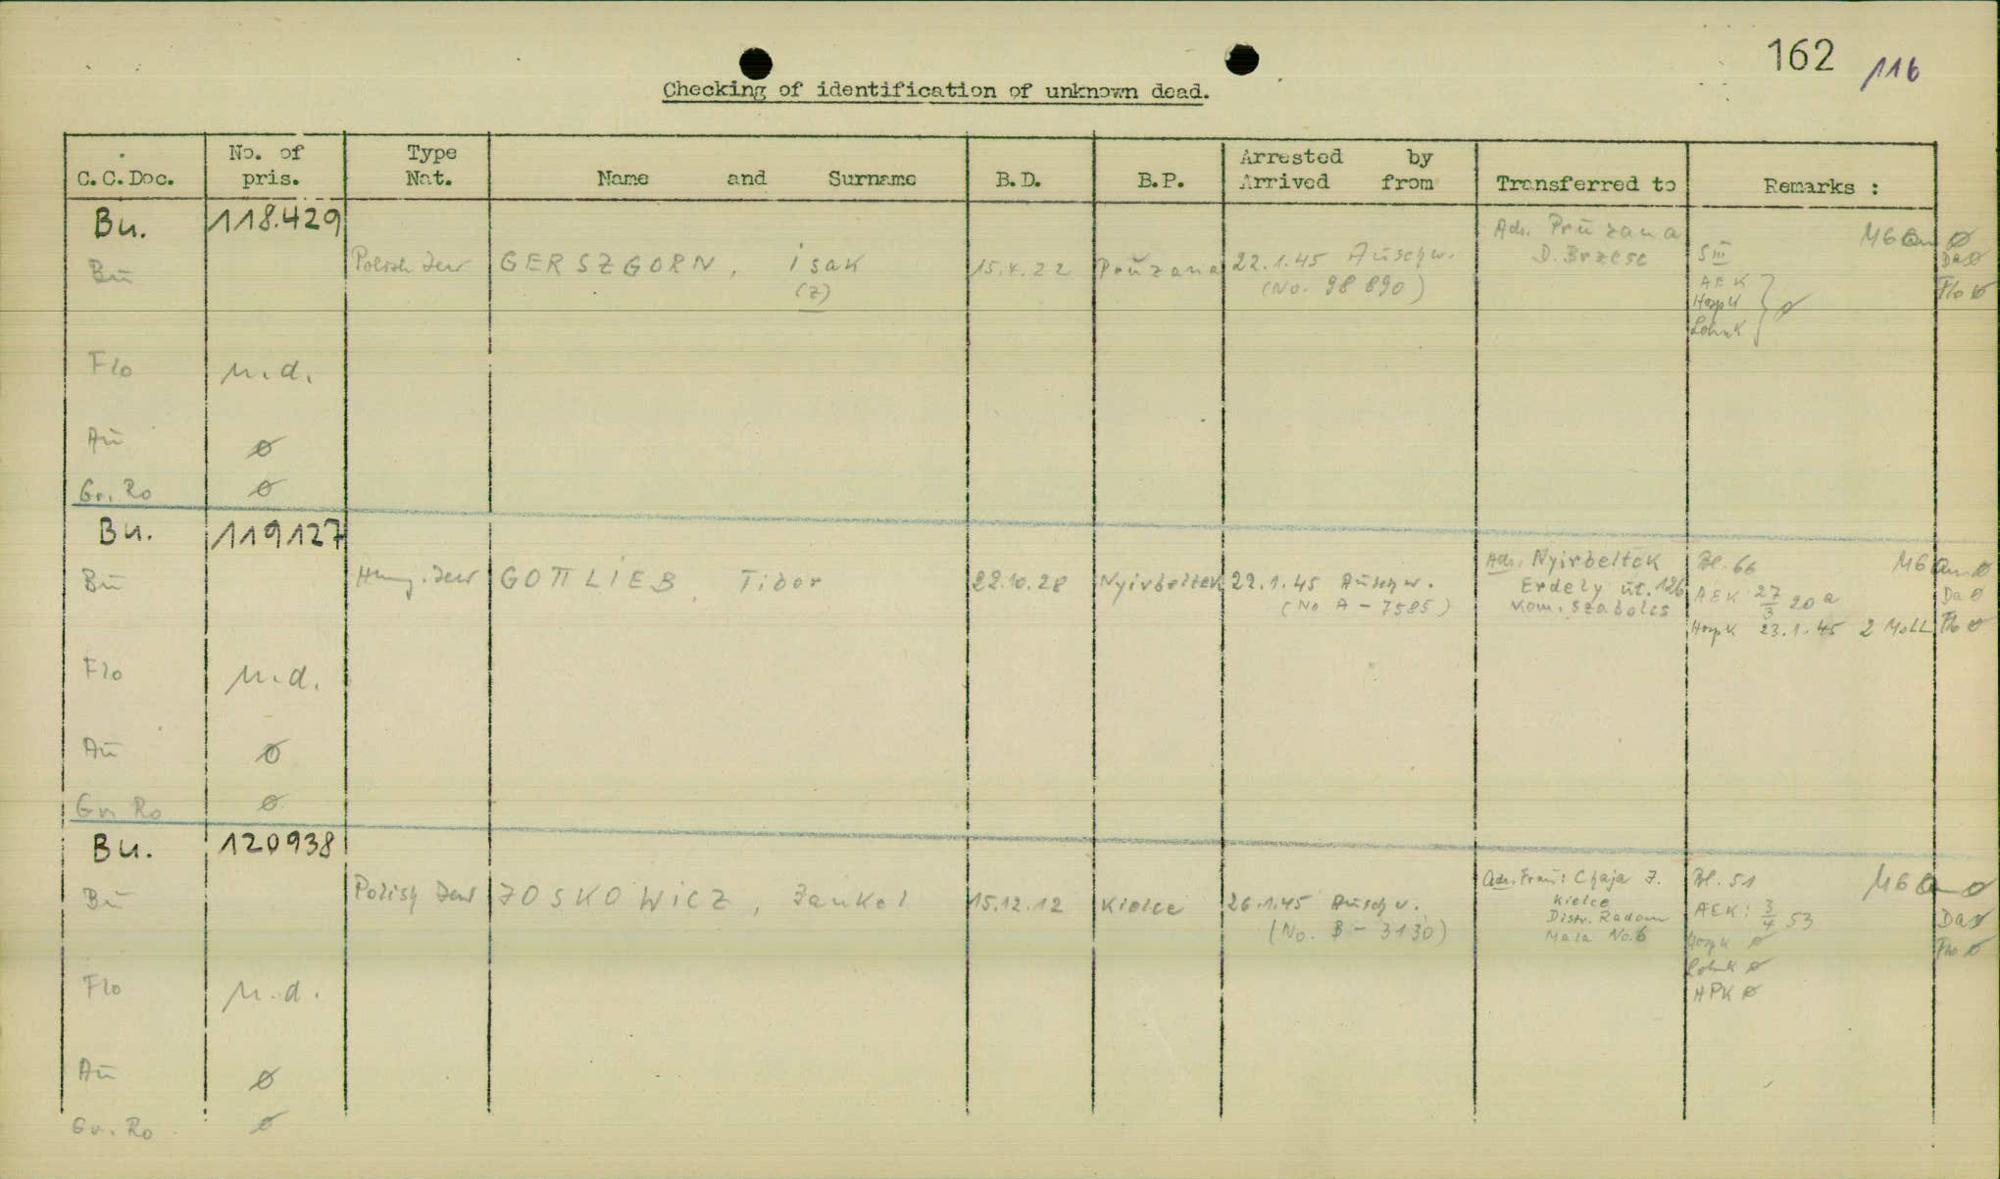 162 116
Checking of identification of unknown dead.
C.C.Doc. No. of pris. Type Nat. Name and Surname B.D. B.P. Arrested by Arrived from Transferred to Remarks :
Bu. 118.429
Bu Polish Jew GERSZGORN, Isak (Z) 15.4.22 Pružana 22.1.45 Auschw. (No. 98 890) Adr. Pružana D. Brzesc S III MG Ø
AEK
HospK
LohnK
Da Ø
Flo Ø
Flo n.d.
Au Ø
Gr. Ro Ø
Bu. 119127
Bu Hung. Jew GOTTLIEB, Tibor 22.10.28 Nyirbeltek 22.1.45 Auschw. (No A - 7585) Adr. Nyirbeltek Bl. 66 MG Ø
Erdely út. 126
Kom. Szabolcs
AEK 27/3 20 a Da Ø
HospK 23.1.45 2 Flo Ø
Flo n.d.
Au Ø
Gr. Ro Ø
Bu. 120938
Bu Polish Jew JOSKOWICZ, Jankel 15.12.12 Kielce 26.1.45 Auschw. (No. B - 3130) Adr. Frau: Chaja J. Bl. 51 MG Ø
Kielce
Distr. Radom
Mala No. 6
AEK: 3/4 53 Da Ø
HospK Ø Flo Ø
LohnK Ø
HPK Ø
Flo n.d.
Au Ø
Gr. Ro Ø